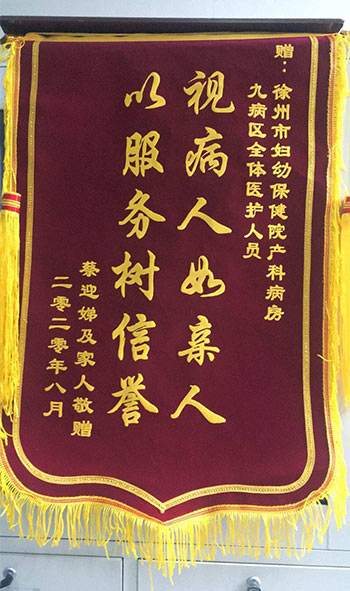 赠：徐州市妇幼保健院产科病房
九病区全体医护人员
视病人如亲人
以服务树信誉
蔡迎娣及家人敬赠
二零二零年八月